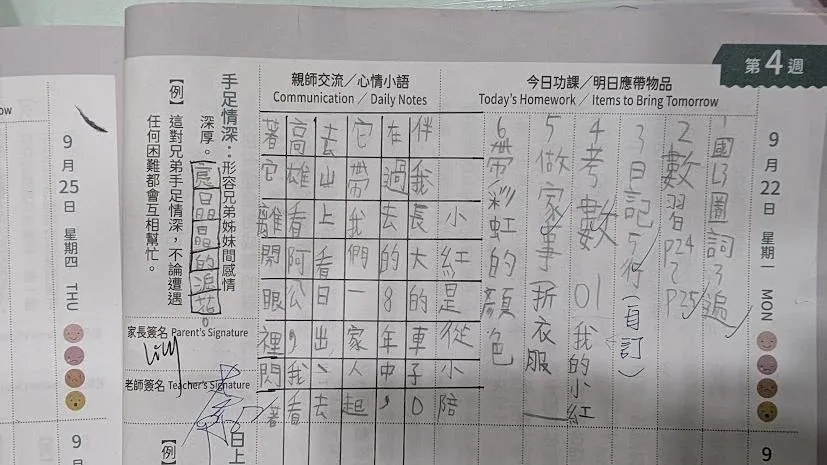 第4週
9月22日 星期一 MON
今日功課／明日應帶物品
Today's Homework／Items to Bring Tomorrow
1國L3圈詞3遍
2數習P24~P25
3日記5行(自訂)
4考數 01 我的小紅
5做家事 折衣服
6帶彩虹的顏色
親師交流／心情小語
Communication／Daily Notes
小紅是從小陪
伴我長大的車子。
在過去的8年中，
它帶我們一家人起
去山上看日出、去
高雄看阿公，我看
著它離開眼裡閃著
晶晶的淚
手足情深：形容兄弟姊妹間感情
深厚。
【例】這對兄弟手足情深，不論遭遇
任何困難都會互相幫忙。
家長簽名 Parent's Signature
Lily
老師簽名 Teacher's Signature
9月25日 星期四 THU
9
白上
【例】
9月
ow